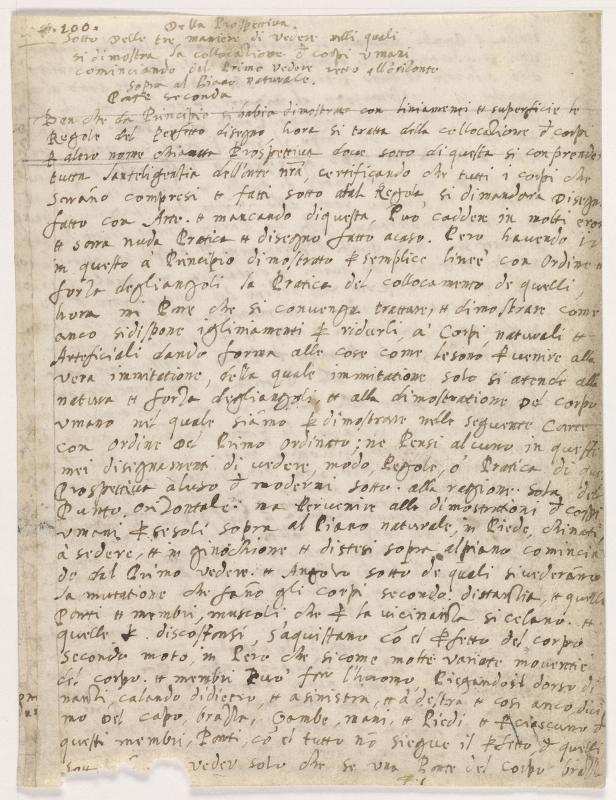 100. Della Prospettiva.
Sotto Delle tre maniere di vedere nelli quali
si dimostra la collocatione d corpi umani
cominciando del Primo vedere retto all'orizonte
sopra al Piano naturale.
Parte seconda
Ben che da Principio si habia dimostrato con liniamenti et superficie le
Regole del Perfetto disegno, hora si tratta della collocatione d corpi
altro nome chiamata Prospettiva dove sotto di questa si comprende
tutta l'inteligentia dell'arte nra, certificando che tutti i corpi che
serano compresi et fatti sotto tal Regola, si dimandera Disegno
fatto con Arte. et mancando di questa, Può caddere in molti erori
et sara nuda Pratica et disegno fatto acaso. Pero havendo io
in questo a Principio dimostrato semplice linee con ordine et
forza degliangoli la Pratica del collocamento de quelli,
hora mi Pare che si convenga trattare, et dimostrare come
anco si dispone i gliniamenti ridurli, a' Corpi naturali et
Arteficiali dando forma alle cose come le sono, venire alla
vera immitatione, della quale immitatione solo si atende alla
natura et forza degliangoli, et alla dimostratione del corpo
umano nel quale, siamo dimostrare nelle seguente Carte
con ordine del Primo ordinato; ne Pensi alcuno in questi
mei disegnamenti di vedere, modo, Regole, o' Pratica di
Prospettiva aluso d moderni sotto alla raggione sola del
Punto, orizontale. ma Pervenire alla dimostrationi d corpi
umani se soli sopra al Piano naturale, in Piede, chinati,
à sedere, et in ginochione et distesi sopra alpiano comincian
do dal Primo vedere. et Angolo sotto de quali si vederanno
la mutatione che fano gli corpi secondo distantia, et quelle
Parti et membri, muscoli che la vicinanza si celano. et
quelle discostansi, s'aquistano co el fetto del corpo
secondo moto, in Pero che sicome molte variate movenzie
del corpo. et membri Può far l'huomo, Piegandosi dorso di
nanti, calando didietro, et a sinistra, et a' destra et cosi anco dici
mo del capo, brazza, Gambe, mani, et Piedi, et ciascuno d
questi membri, Parti, co' el tutto no siegue il fetto d quelli
veder solo che se una Parte del Corpo